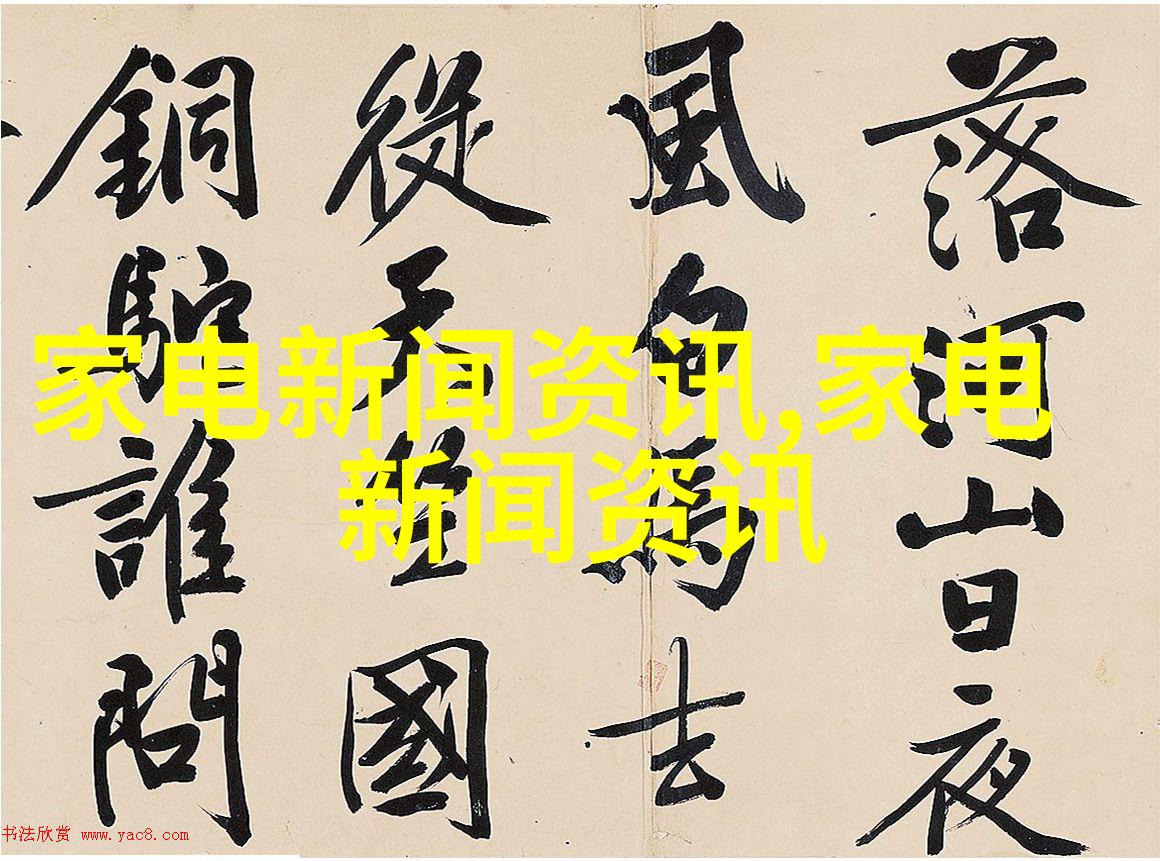 落河山日夜
風白馬去
從天竺國
銅駝誰問
家电新闻资讯,家电
新闻资讯
书法欣赏 www.yac8.com